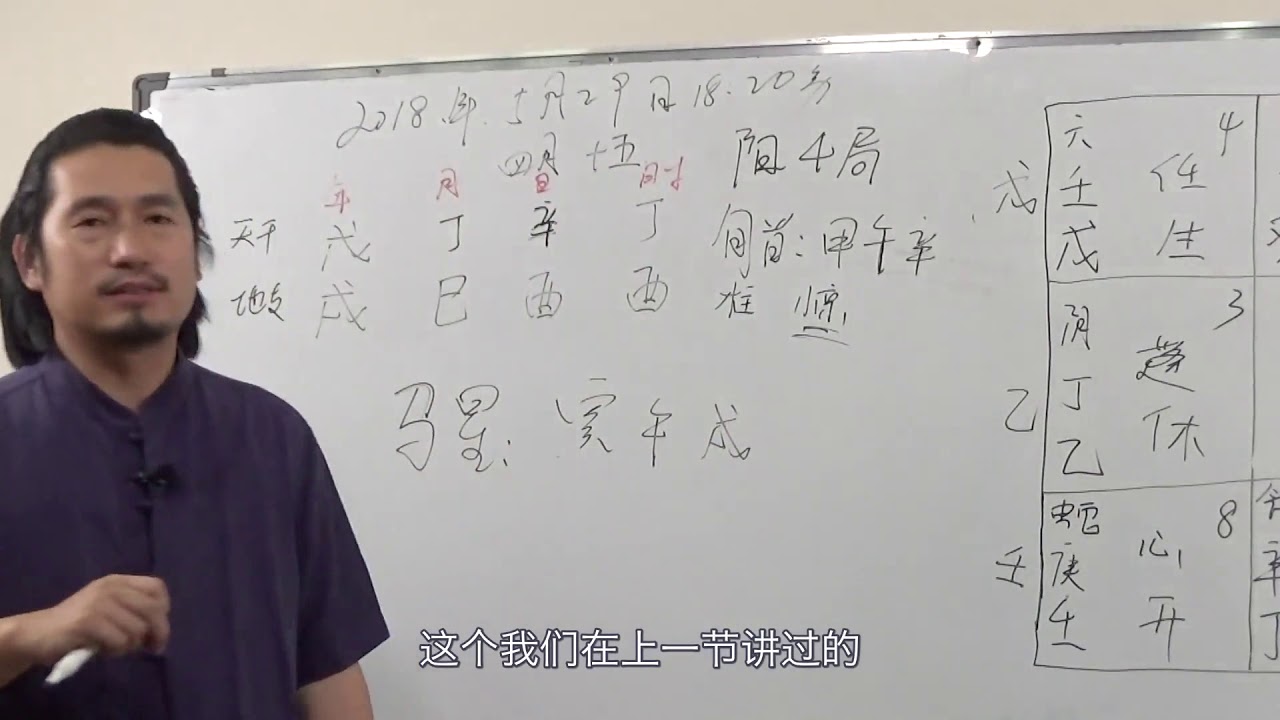 2018年.5月29日18:20分
四月十五
阳4局
年 月 日 时
天干 戊 丁 辛 丁
旬首:甲午辛
地支 戌 巳 酉 酉
马星:寅午戌
戊
六 4
壬 任
戊 生
乙
阴 3
丁 蓬
乙 休
壬
8
庚 心
壬 开
辛
丁
这个我们在上一节讲过的